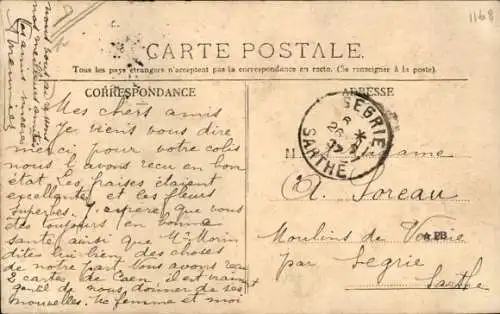 1168
CARTE POSTALE
Tous les pays étrangers n'acceptent pas la correspondance en recto. (Se renseigner à la poste).
CORRESPONDANCE
Mes chers amis
Je viens vous dire
merci pour votre colis
nous l'avons recu en bon
état les fraises étaient
excellentes et les fleurs
superbes. J'espère que vous
êtes toujours en bonne
santé ainsi que Mr Morin
dites lui bien des choses
de notre part vous avons reçu
2 cartes de Caen il est vraiment
gentil de nous donner de ses
nouvelles. Ma femme et moi
nous vous
nos meilleures amitiés
Vos amis sincères
Meunier
ADRESSE
SEGRIE
SARTHE
Madame
A. Loreau
Moulins de Vernie
par Segrie
Sarthe
PB